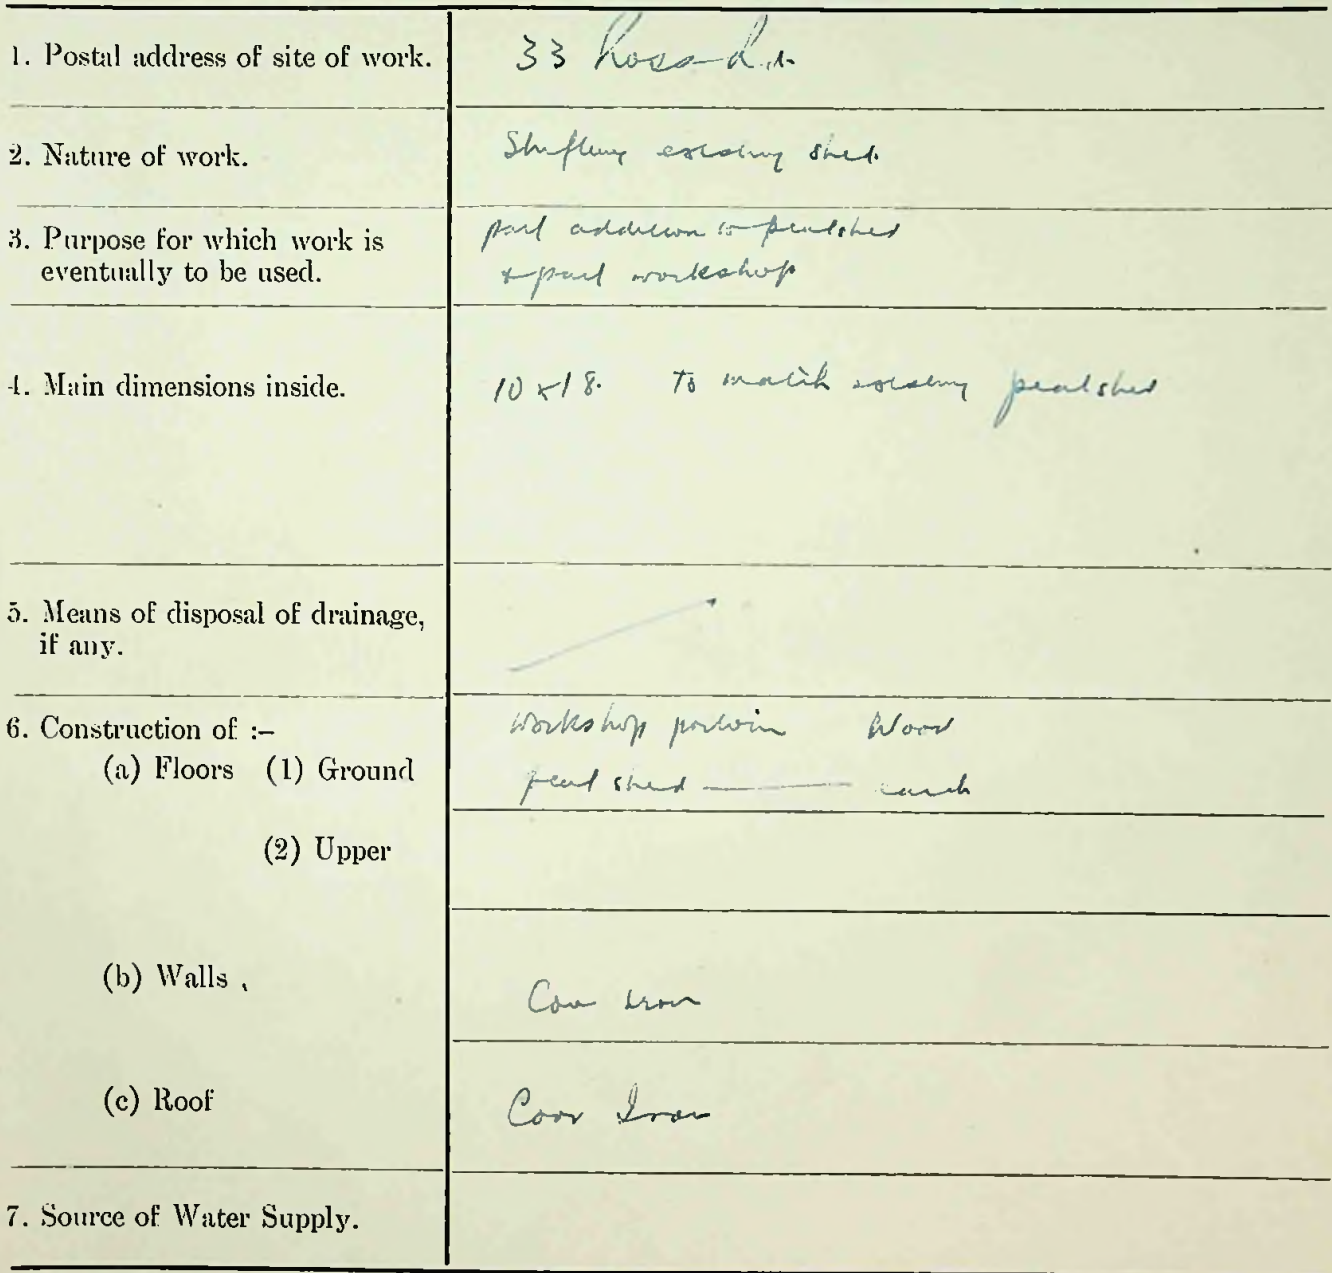 1. Postal address of site of work.
33 Ross Rd.
2. Nature of work.
Shifting existing shed.
3. Purpose for which work is
eventually to be used.
part addition to peatshed
+ part workshop
4. Main dimensions inside.
10 x 18. To match existing peatshed
5. Means of disposal of drainage,
if any.
6. Construction of :-
(a) Floors (1) Ground
workshop portion Wood
peat shed — earth
(2) Upper
(b) Walls
Corr Iron
(c) Roof
Corr Iron
7. Source of Water Supply.